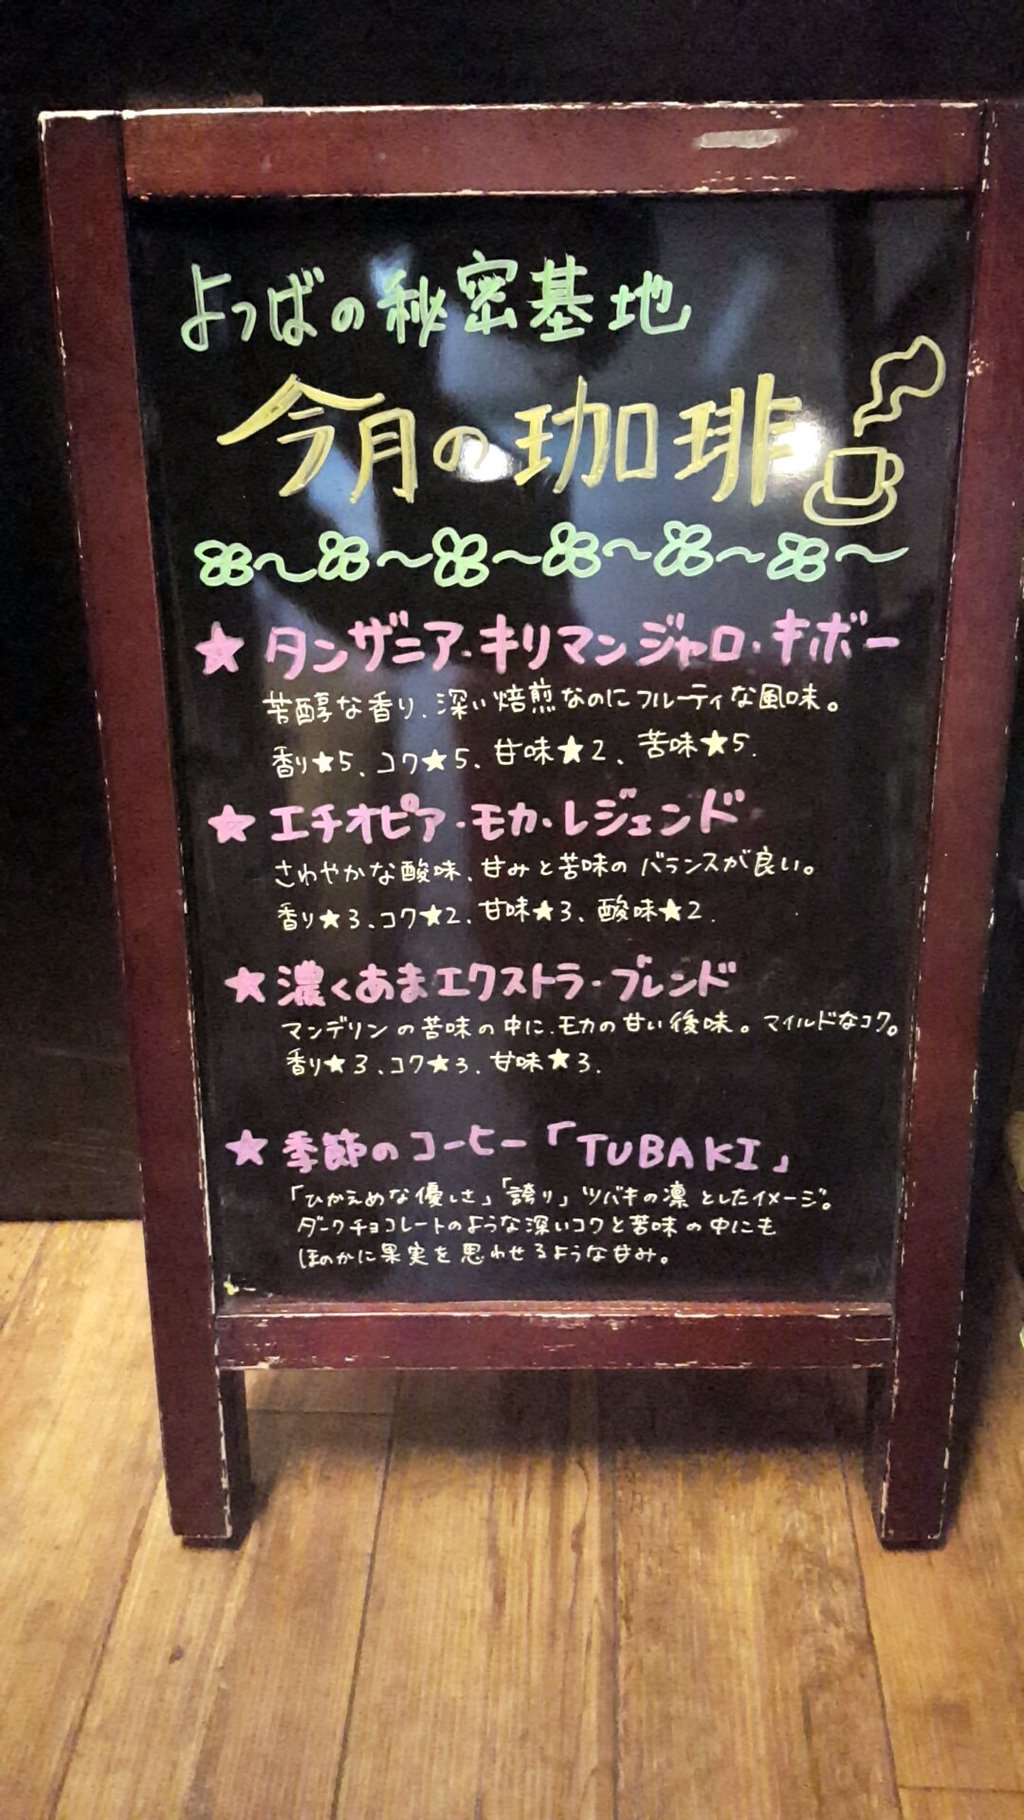 よつばの秘密基地
今月の珈琲
★タンザニア・キリマンジャロ・キボー
芳醇な香り、深い焙煎なのにフルーティな風味。
香り★5、コク★5、甘味★2、苦味★5.
★エチオピア・モカ・レジェンド
さわやかな酸味、甘みと苦味のバランスが良い。
香り★3、コク★2、甘味★3、酸味★2.
★濃くあまエクストラ・ブレンド
マンデリンの苦味の中に、モカの甘い後味。マイルドなコク。
香り★3、コク★3、甘味★3.
★季節のコーヒー「TUBAKI」
「ひかえめな優しさ」「誇り」ツバキの凛としたイメージ。
ダークチョコレートのような深いコクと苦味の中にも
ほのかに果実を思わせるような甘み。